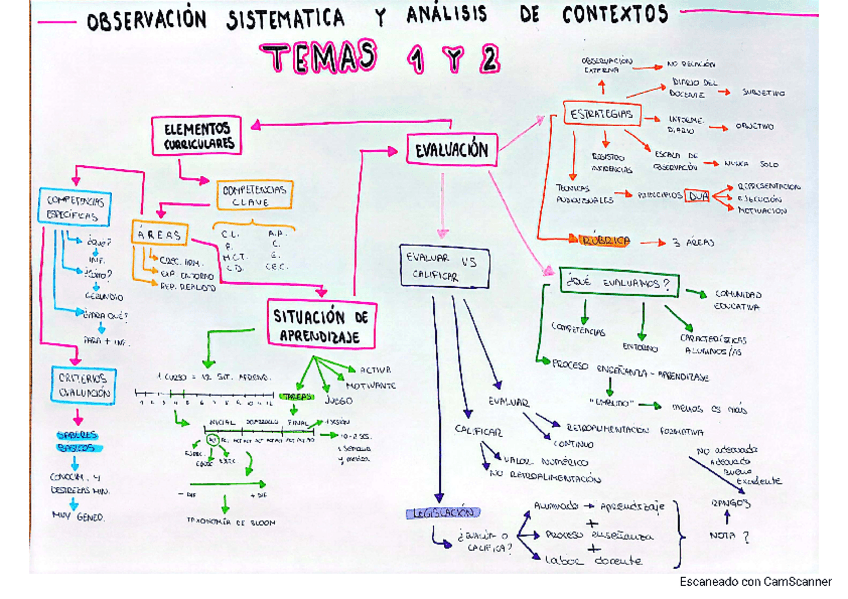 OBSERVACIÓN SISTEMATICA Y ANÁLISIS DE CONTEXTOS
TEMAS 1 Y 2
ELEMENTOS
CURRICULARES
EVALUACIÓN
ESTRATEGIAS
OBSERVACION
EXTERNA
NO RELACIÓN
DIARIO DEL
DOCENTE
SUBJETIVO
INFORME
DIARIO
OBJETIVO
ESCALA DE
OBSERVACIÓN
NUNCA SOLO
REGISTRO
TECNICAS
AUDIOVISUALES
PRINCIPIOS DUA
REPRESENTACION
EJECUCIÓN
MOTIVACION
RÚBRICA
3 ÁREAS
COMPETENCIAS
CLAVE
C.L.
P.
M.C.T.
C.D.
A.A.
C.
E.
C.E.C.
COMPETENCIAS
ESPECÍFICAS
¿QUÉ?
INF.
¿CÓMO?
GERUNDIO
¿PARA QUÉ?
PARA + INF.
ÁREAS
CREC. ARM.
EXP. ENTORNO
REP. REALIDAD
SITUACIÓN DE
APRENDIZAJE
ACTIVA
MOTIVANTE
JUEGO
TAREAS
1 CURSO = 12 SIT. APREND.
1 2 3 4 5 6 7 8 9 10 11 12
INICIAL DESARROLLO FINAL
1 SESIÓN
10-12 SES.
1 SEMANA
Y MEDIA
- DIF
+ DIF
TAXONOMÍA DE BLOOM
CRITERIOS
EVALUACIÓN
SABERES
BASICOS
CONOCIM. Y
DESTREZAS MIN.
MUY GENÉO.
EVALUAR VS
CALIFICAR
EVALUAR
RETROALIMENTACION FORMATIVA
CONTINUO
CALIFICAR
VALOR NUMÉRICO
NO RETROALIMENTACIÓN
LEGISLACIÓN
¿EVALÚA O
CALIFICA?
Alumnado → Aprendizaje
+
Proceso enseñanza
+
Labor docente
NOTA?
RANGOS
NO adecuado
Adecuado
Bueno
Excelente
¿QUÉ EVALUAMOS?
COMUNIDAD
EDUCATIVA
COMPETENCIAS
ENTORNO
CARACTERÍSTICAS
ALUMNOS/AS
PROCESO ENSEÑANZA - APRENDIZAJE
menos es más
Escaneado con CamScanner